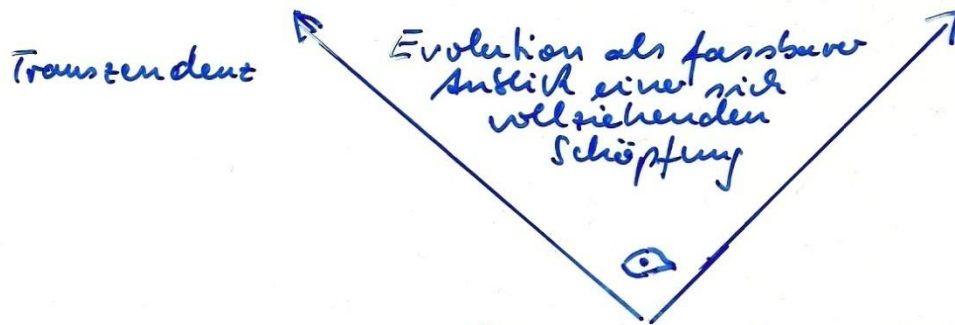 Transzendenz
Evolution als fassbarer
Anblick einer sich
vollziehenden
Schöpfung